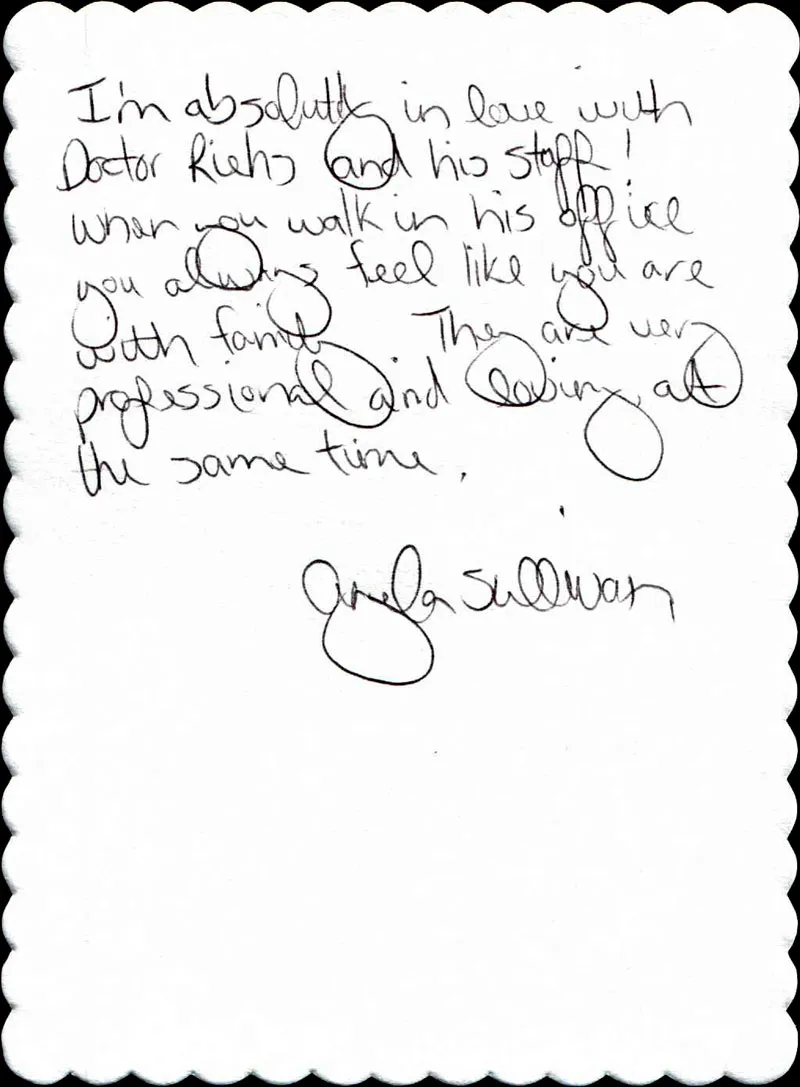 I'm absolutely in love with
Doctor and his staff!
when you walk in his office
you always feel like you are
with family They are very
professional and loving, at
the same time.
Angela Sullivan